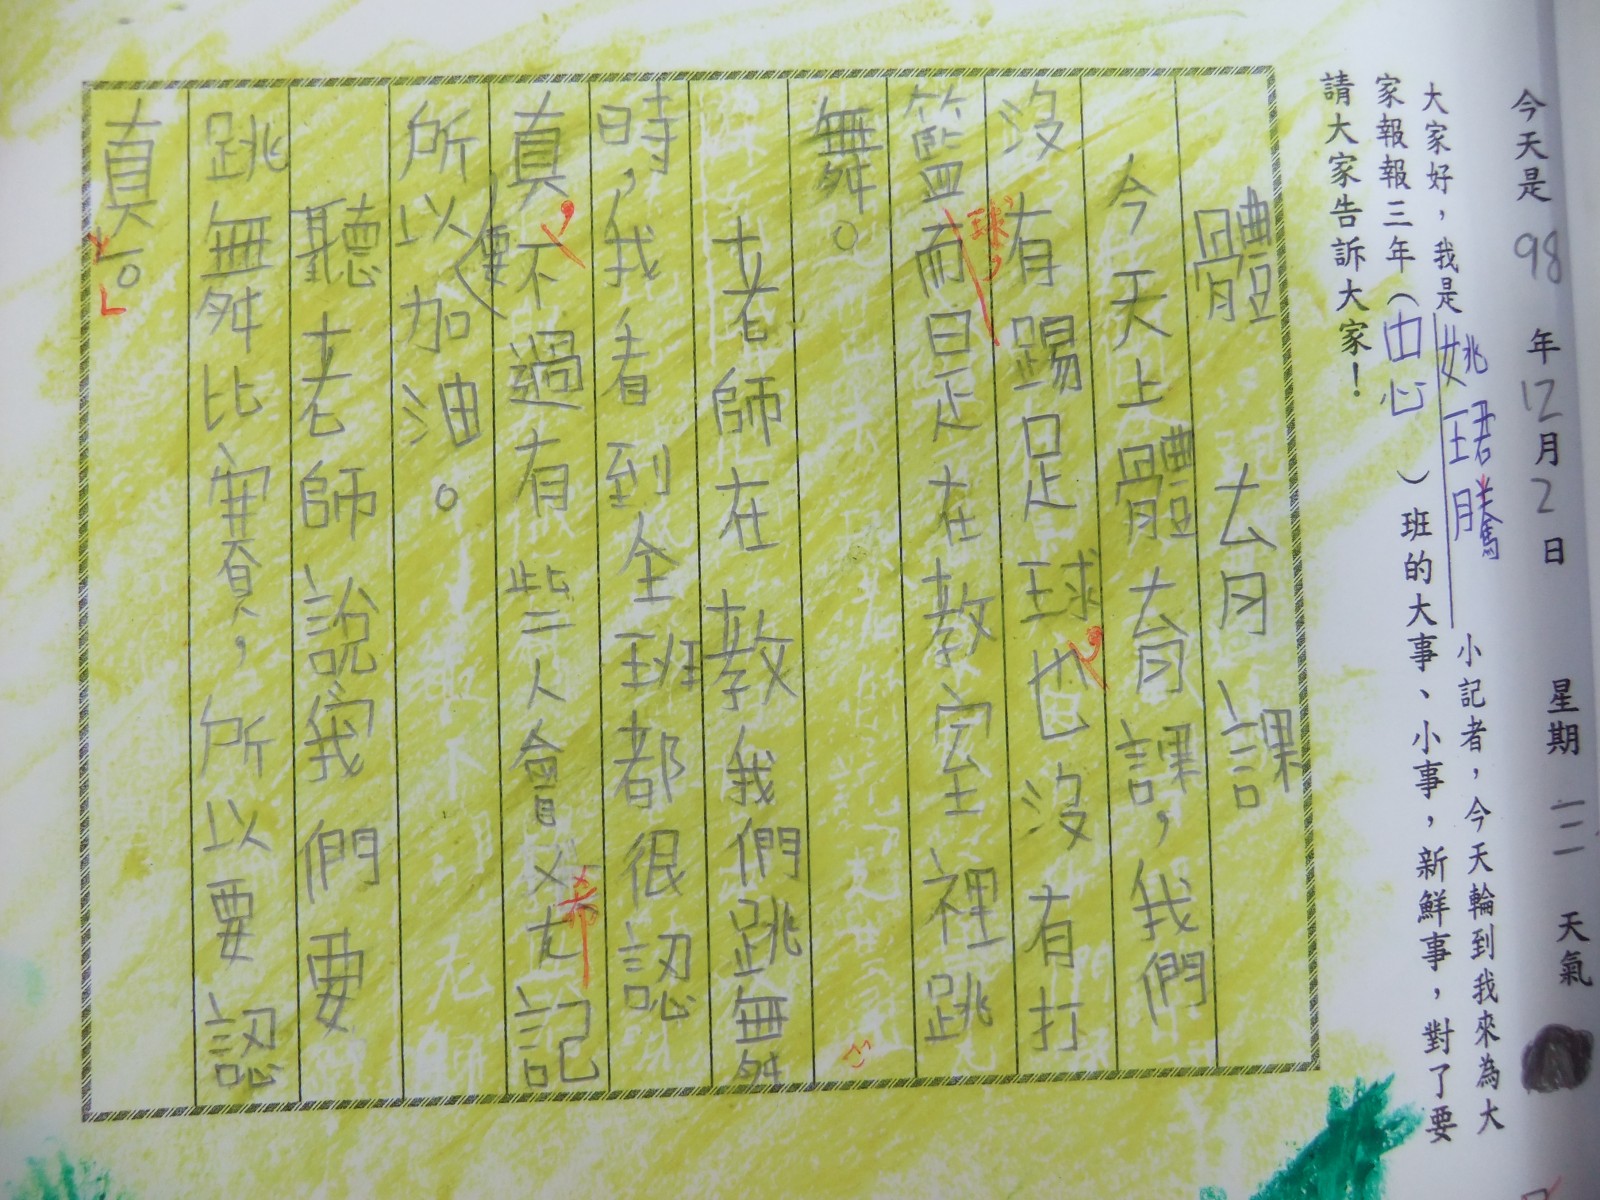 今天是 98 年 12 月 2 日 星期 三 天氣
大家好，我是 姚珺騰 小記者，今天輪到我來為大
家報報三年（ 中心 ）班的大事、小事，新鮮事，對了要
請大家告訴大家！
體育課
今天上體育課，我們
沒有踢足球，也沒有打
籃球，而是在教室裡跳
舞。
老師在教我們跳舞
時，我看到全班都很認
真，不過有些人會ㄨ忘記
所以要加油。
聽老師說我們要
跳舞比賽，所以要認
真。